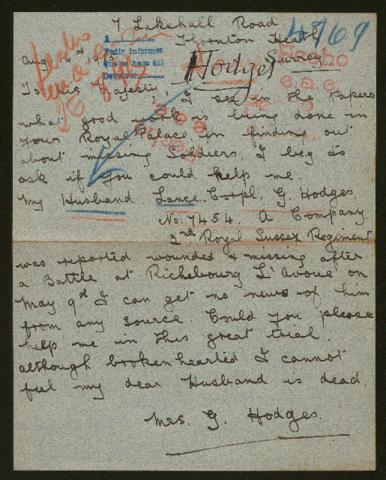 7 Lakehall Road
Thornton Heath
4769
Surrey
Augst 16th 1915
Pedir informes
Devolver
Hodges
Fecho
To His Majesty, I see in the papers
what good work is being done in
your Royal Palace in finding out
about missing Soldiers. I beg to
ask if you could help me.
My Husband Lance. Corpl. G. Hodges
No. 7454. A Company.
2nd Royal Sussex Regiment
was reported wounded & missing after
a Battle at Richebourg L'Avoue on
May 9th I can get no news of him
from any source. Could you please
help me in this great trial.
although brokenhearted I cannot
feel my dear Husband is dead.
Mrs. G. Hodges.